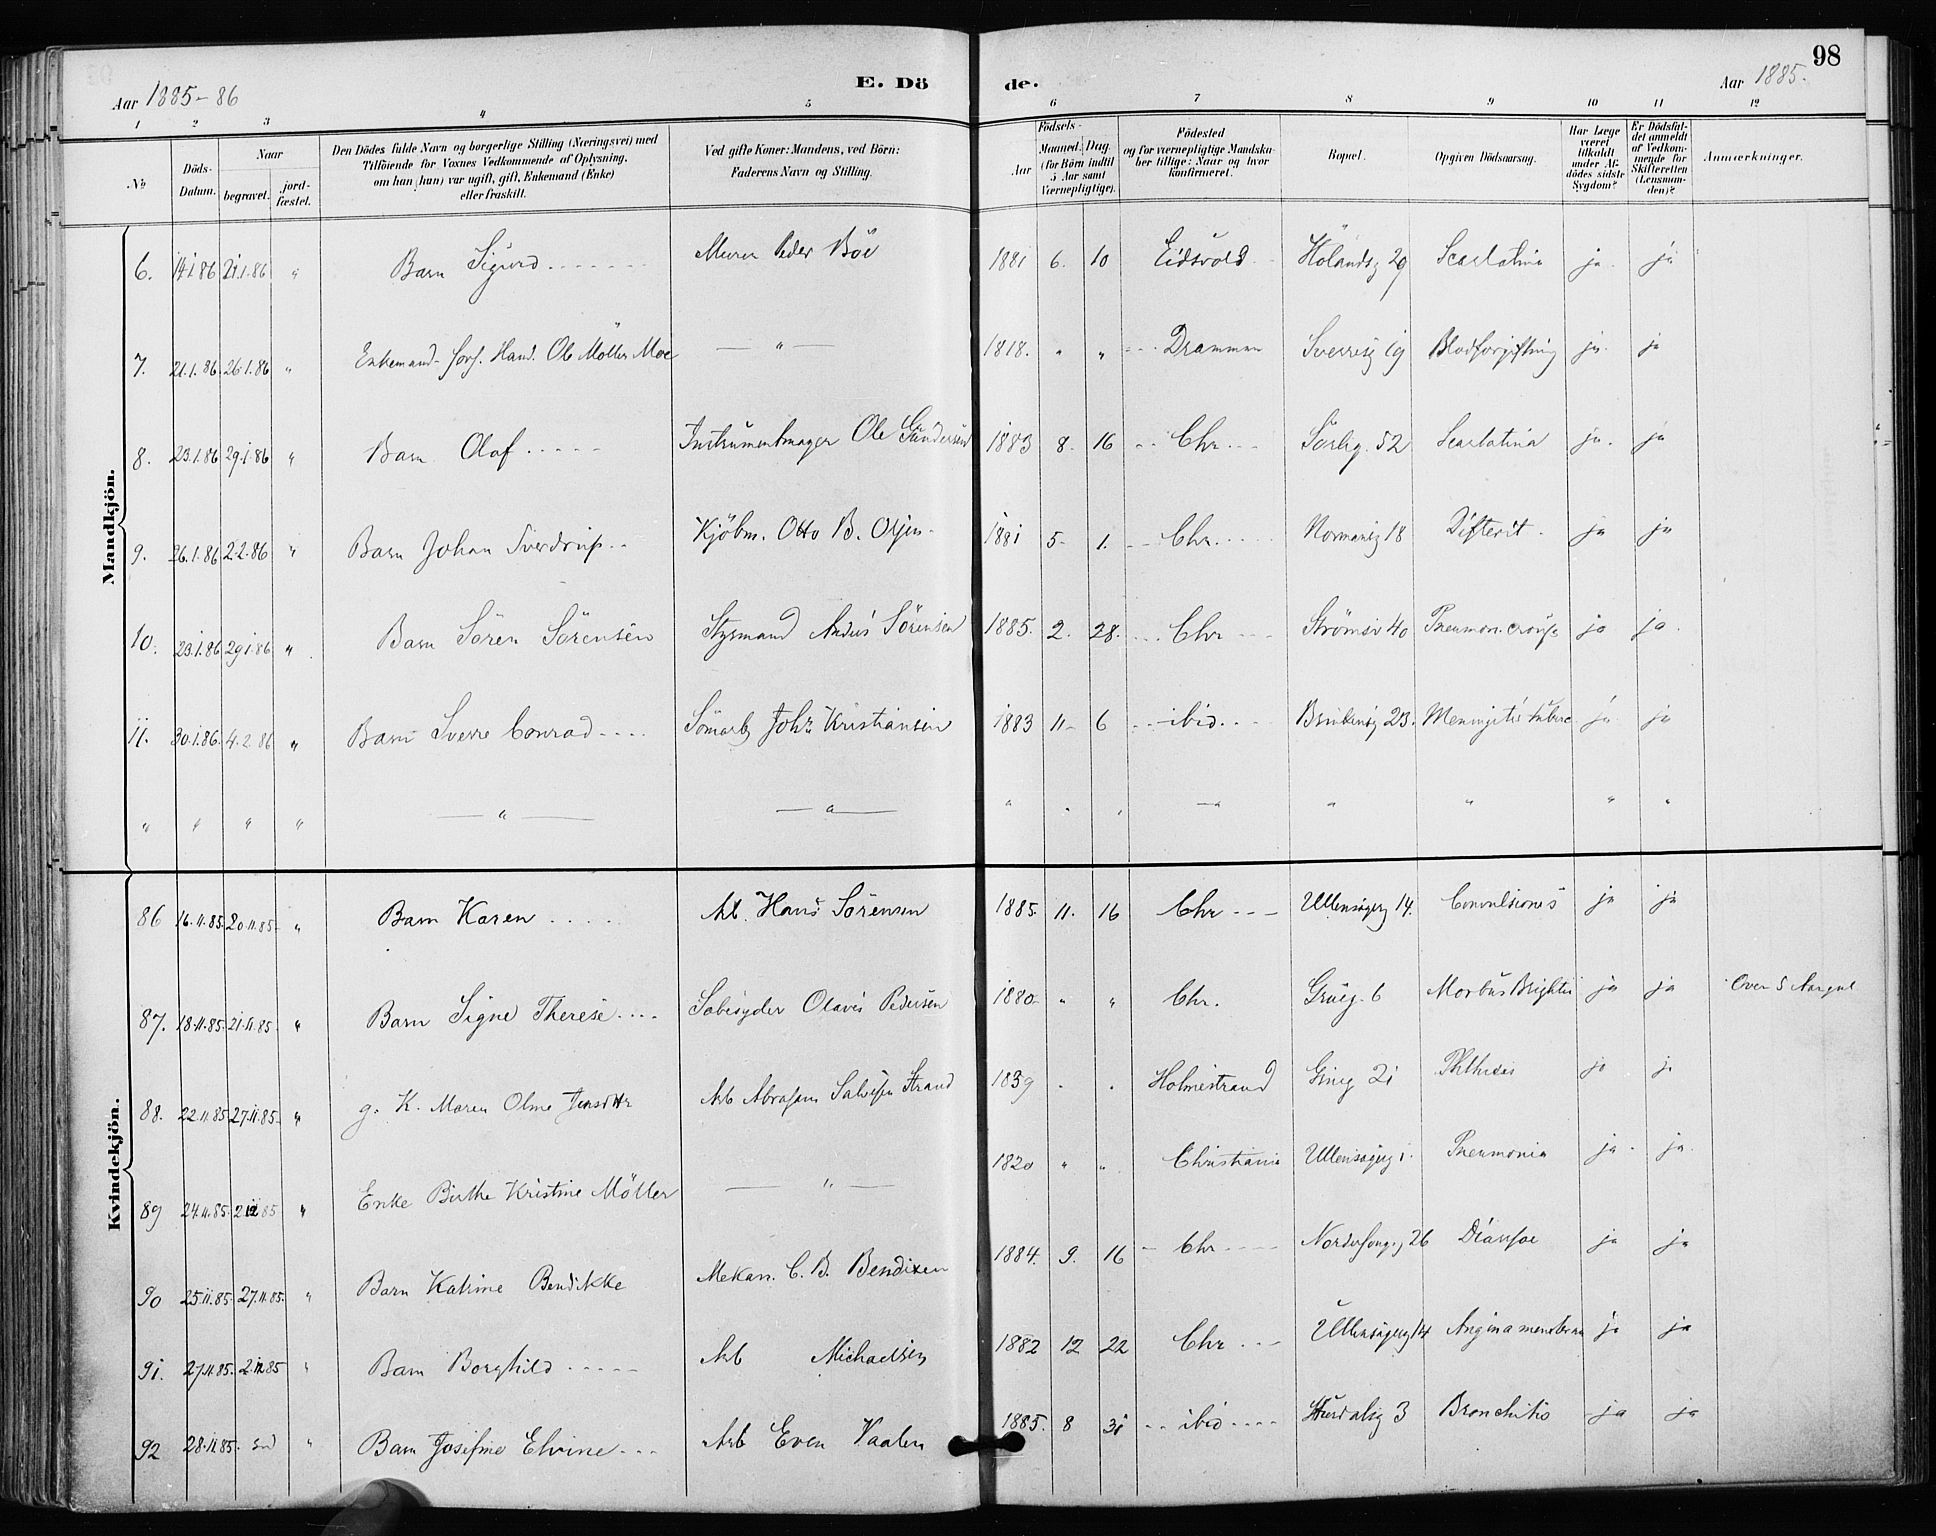 98
Aar 1885-86 E. Dö de. Aar 1885.
1 2 3 4 5 6 7 8 9 10 11 12
No Döds-Datum. Naar begravet. jord-fæstet. Den Dödes fulde Navn og borgerlige Stilling (Næringsvei) med Tilföiende for Voxnes Vedkommende af Oplysning, om han (hun) var ugift, gift, Enkemand (Enke) eller fraskilt. Ved gifte Koner: Mandens, ved Börn: Faderens Navn og Stilling. Födsels- Aar Maaned. Dag. (for Börn indtil 5 Aar samt Værnepligtige). Födested og for værnepligtige Mandskaber tillige: Naar og hvor konfirmeret. Bopæl. Opgiven Dödsaarsag. Har Læge været tilkaldt under Afdödes sidste Sygdom? Er Dödsfaldet anmeldt af Vedkommende for Skifteretten (Lensmanden)? Anmærkninger.
Mandkjön.
6. 14.1.86 21.1.86 " Barn Sigurd Murer Peder Böe 1881 6. 10 Eidsvold Hölandsg 29 Scarlatina ja ja
7. 21.1.86. 26.1.86 " Enkemand forh. Hand. Ole Möller Moe — " — 1818. " " Drammen Sverresg 19 Blodforgiftning ja. ja
8. 23.1.86 29.1.86 " Barn Olaf Instrumentmager Ole Gundersen 1883 8. 16 Chr Sörlig. 52 Scarlatina ja. ja
9. 26.1.86 2.2.86 " Barn Johan Sverdrup Kjöbm. Otto B. Olsen 1881 5 1. Chr. Normansg 18 Difterit. ja ja
10. 23.1.86 29.1.86 " Barn Sören Sörensen Styrmand Sörensen 1885. 2. 28. Chr Strömsv 40 Pneumon. croup ja ja.
11. 30.1.86. 4.2.86 " Barn Sverre Conrad Sömarb Joh. Kristiansen 1883 11 6 ibid 23. Meningitis tuberc ja ja
" " " " — " — — " — " " " " " " " "
Kvindekjön.
86 16.11.85. 20.11.85 " Barn Karen Arb. Hans Sörensen 1885. 11. 16 Chr Ullensagerg 14. Convulsiones ja ja
87. 18.11.85. 21.11.85. " Barn Signe Therese Olaves Pedersen 1880 " " Chr. Grüeg. 6 Morbus Brightii ja ja Over 5 Aar gml
88. 22.11.85. 27.11.85. " g. K. Maren Oline Jensdttr Arb Abraham Salvesen Strand 1839 . . Holmestrand 21 Phthisis ja ja
89 24.11.85. 2.12.85 " Enke Birthe Kristine Möller — " — 1820 " " Christiania Ullensagerg 1. Pneumonia ja. ja.
90 25.11.85. 27.11.85. " Barn Katrine Bendikke Mekan. C. B. Bendixen 1884. 9. 16 Chr 26 Diarrhoe ja ja
91. 27.11.85. 2.12.85 " Barn Borghild Arb Michaelsen 1882 12 22 Chr Ullensagerg 14 Angina membran ja ja
92 28.11.85. sd " Barn Josefine Elvine Arb Even Vaalen 1885. 8 31 ibid Hurdalsg 3 Bronchitis ja ja